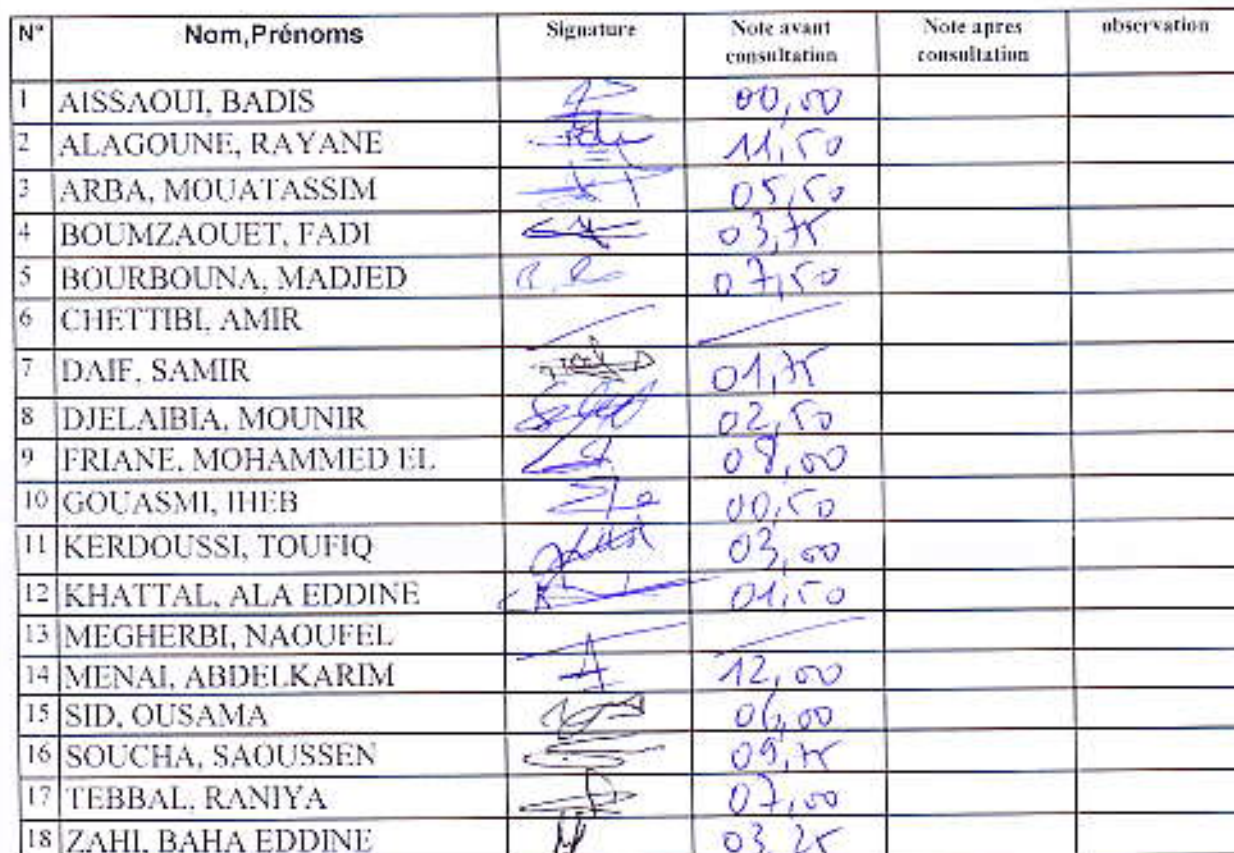 N° Nom,Prénoms Signature Note avant consultation Note apres consultation observation
1 AISSAOUI, BADIS 00,00
2 ALAGOUNE, RAYANE 11,50
3 ARBA, MOUATASSIM 05,50
4 BOUMZAOUET, FADI 03,75
5 BOURBOUNA, MADJED 07,50
6 CHETTIBI, AMIR
7 DAIF, SAMIR 01,75
8 DJELAIBIA, MOUNIR 02,50
9 FRIANE, MOHAMMED EL
10 GOUASMI, IHEB 00,50
11 KERDOUSSI, TOUFIQ 03,00
12 KHATTAL, ALA EDDINE 01,50
13 MEGHERBI, NAOUFEL
14 MENAI, ABDELKARIM 12,00
15 SID, OUSAMA 06,00
16 SOUCHA, SAOUSSEN 09,75
17 TEBBAL, RANIYA 07,00
18 ZAHI, BAHA EDDINE 03,25